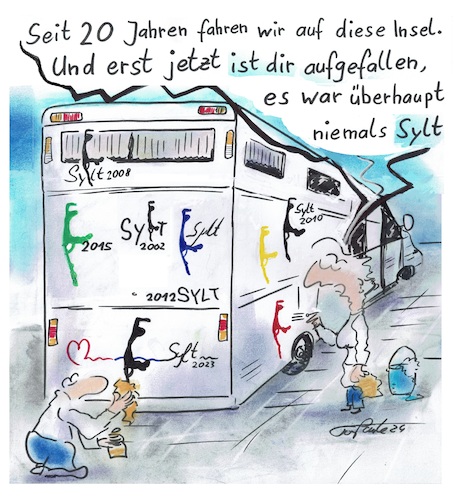 Seit 20 Jahren fahren wir auf diese Insel.
Und erst jetzt ist dir aufgefallen,
es war überhaupt
niemals Sylt
Sylt 2008
Sylt
2010
2015
SyLT
2002
Sylt
2012 SYLT
Sylt
2023